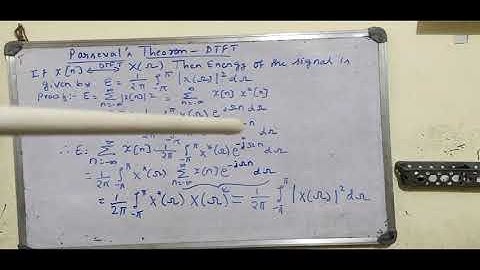 Parseval's Theorem - DTFT
If x[n] DTFT X(Ω) Then Energy of the signal is
given by E = 1/2π ∫_{-π}^{π} |X(Ω)|² dΩ
Proof:- E = ∑_{n=-∞}^{∞} |x[n]|² = ∑_{n=-∞}^{∞} x[n] x*[n]
X(Ω) e^{jΩn} dΩ
dΩ
∴ E = ∑_{n=-∞}^{∞} x[n] 1/2π ∫_{-π}^{π} X*(Ω) e^{-jΩn} dΩ
= 1/2π ∫_{-π}^{π} X*(Ω) ∑_{n=-∞}^{∞} x[n] e^{-jΩn} dΩ
= 1/2π ∫_{-π}^{π} X*(Ω) X(Ω) = 1/2π ∫_{-π}^{π} |X(Ω)|² dΩ